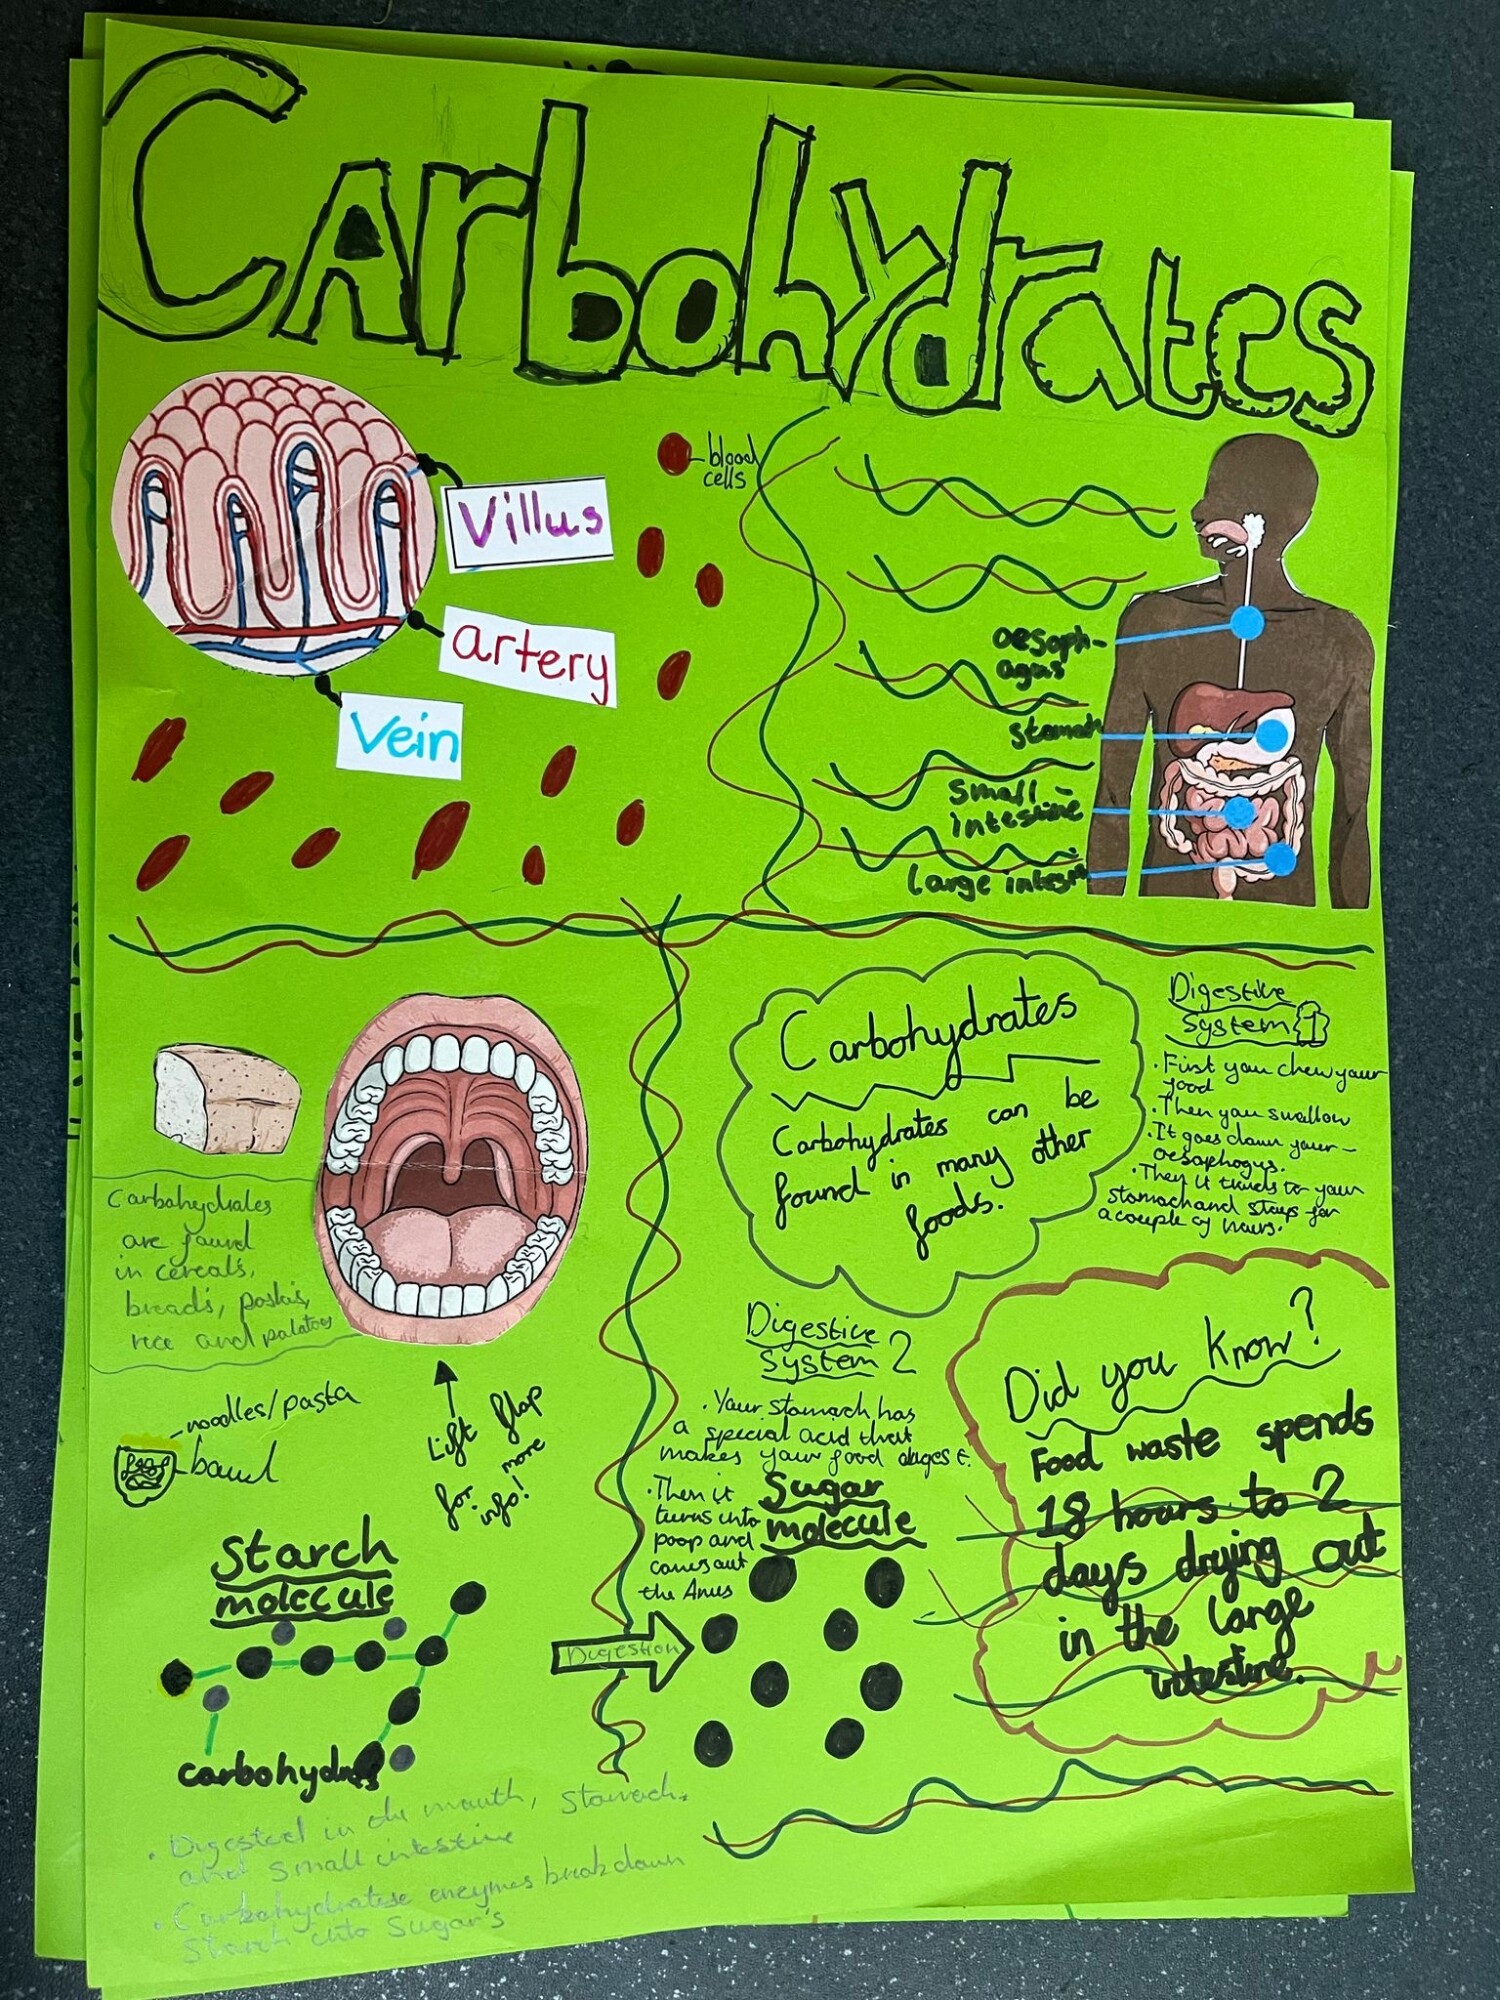 Carbohydrates
Villus
artery
Vein
blood
cells
oesoph-
agus
stomach
small-
intestine
large intesti
Carbohydrates
are found
in cereal's,
bread's, pasta's,
rice and potatoes
noodles/pasta
bowl
Lift flap
for more
info!
Starch
molecule
carbohydras
• Digested in the mouth, stomach,
and small intestine
• Carbohydratese enzymes breakdown
Starch into Sugar's
Carbohydrates
Carbohydrates can be
found in many other
foods.
Digestive
System 1
• First you chew your
food
• Then you swallow
• It goes down your-
oesophogus.
• Then it travels to your
stomach and stays for
a couple of hours.
Digestive
System 2
• Your stomach has
a special acid that
makes your food digest.
• Then it
turns into
poop and
comes out
the Anus
Digestion
Sugar
molecule
Did you know?
Food waste spends
18 hours to 2
days drying out
in the large
intestine.